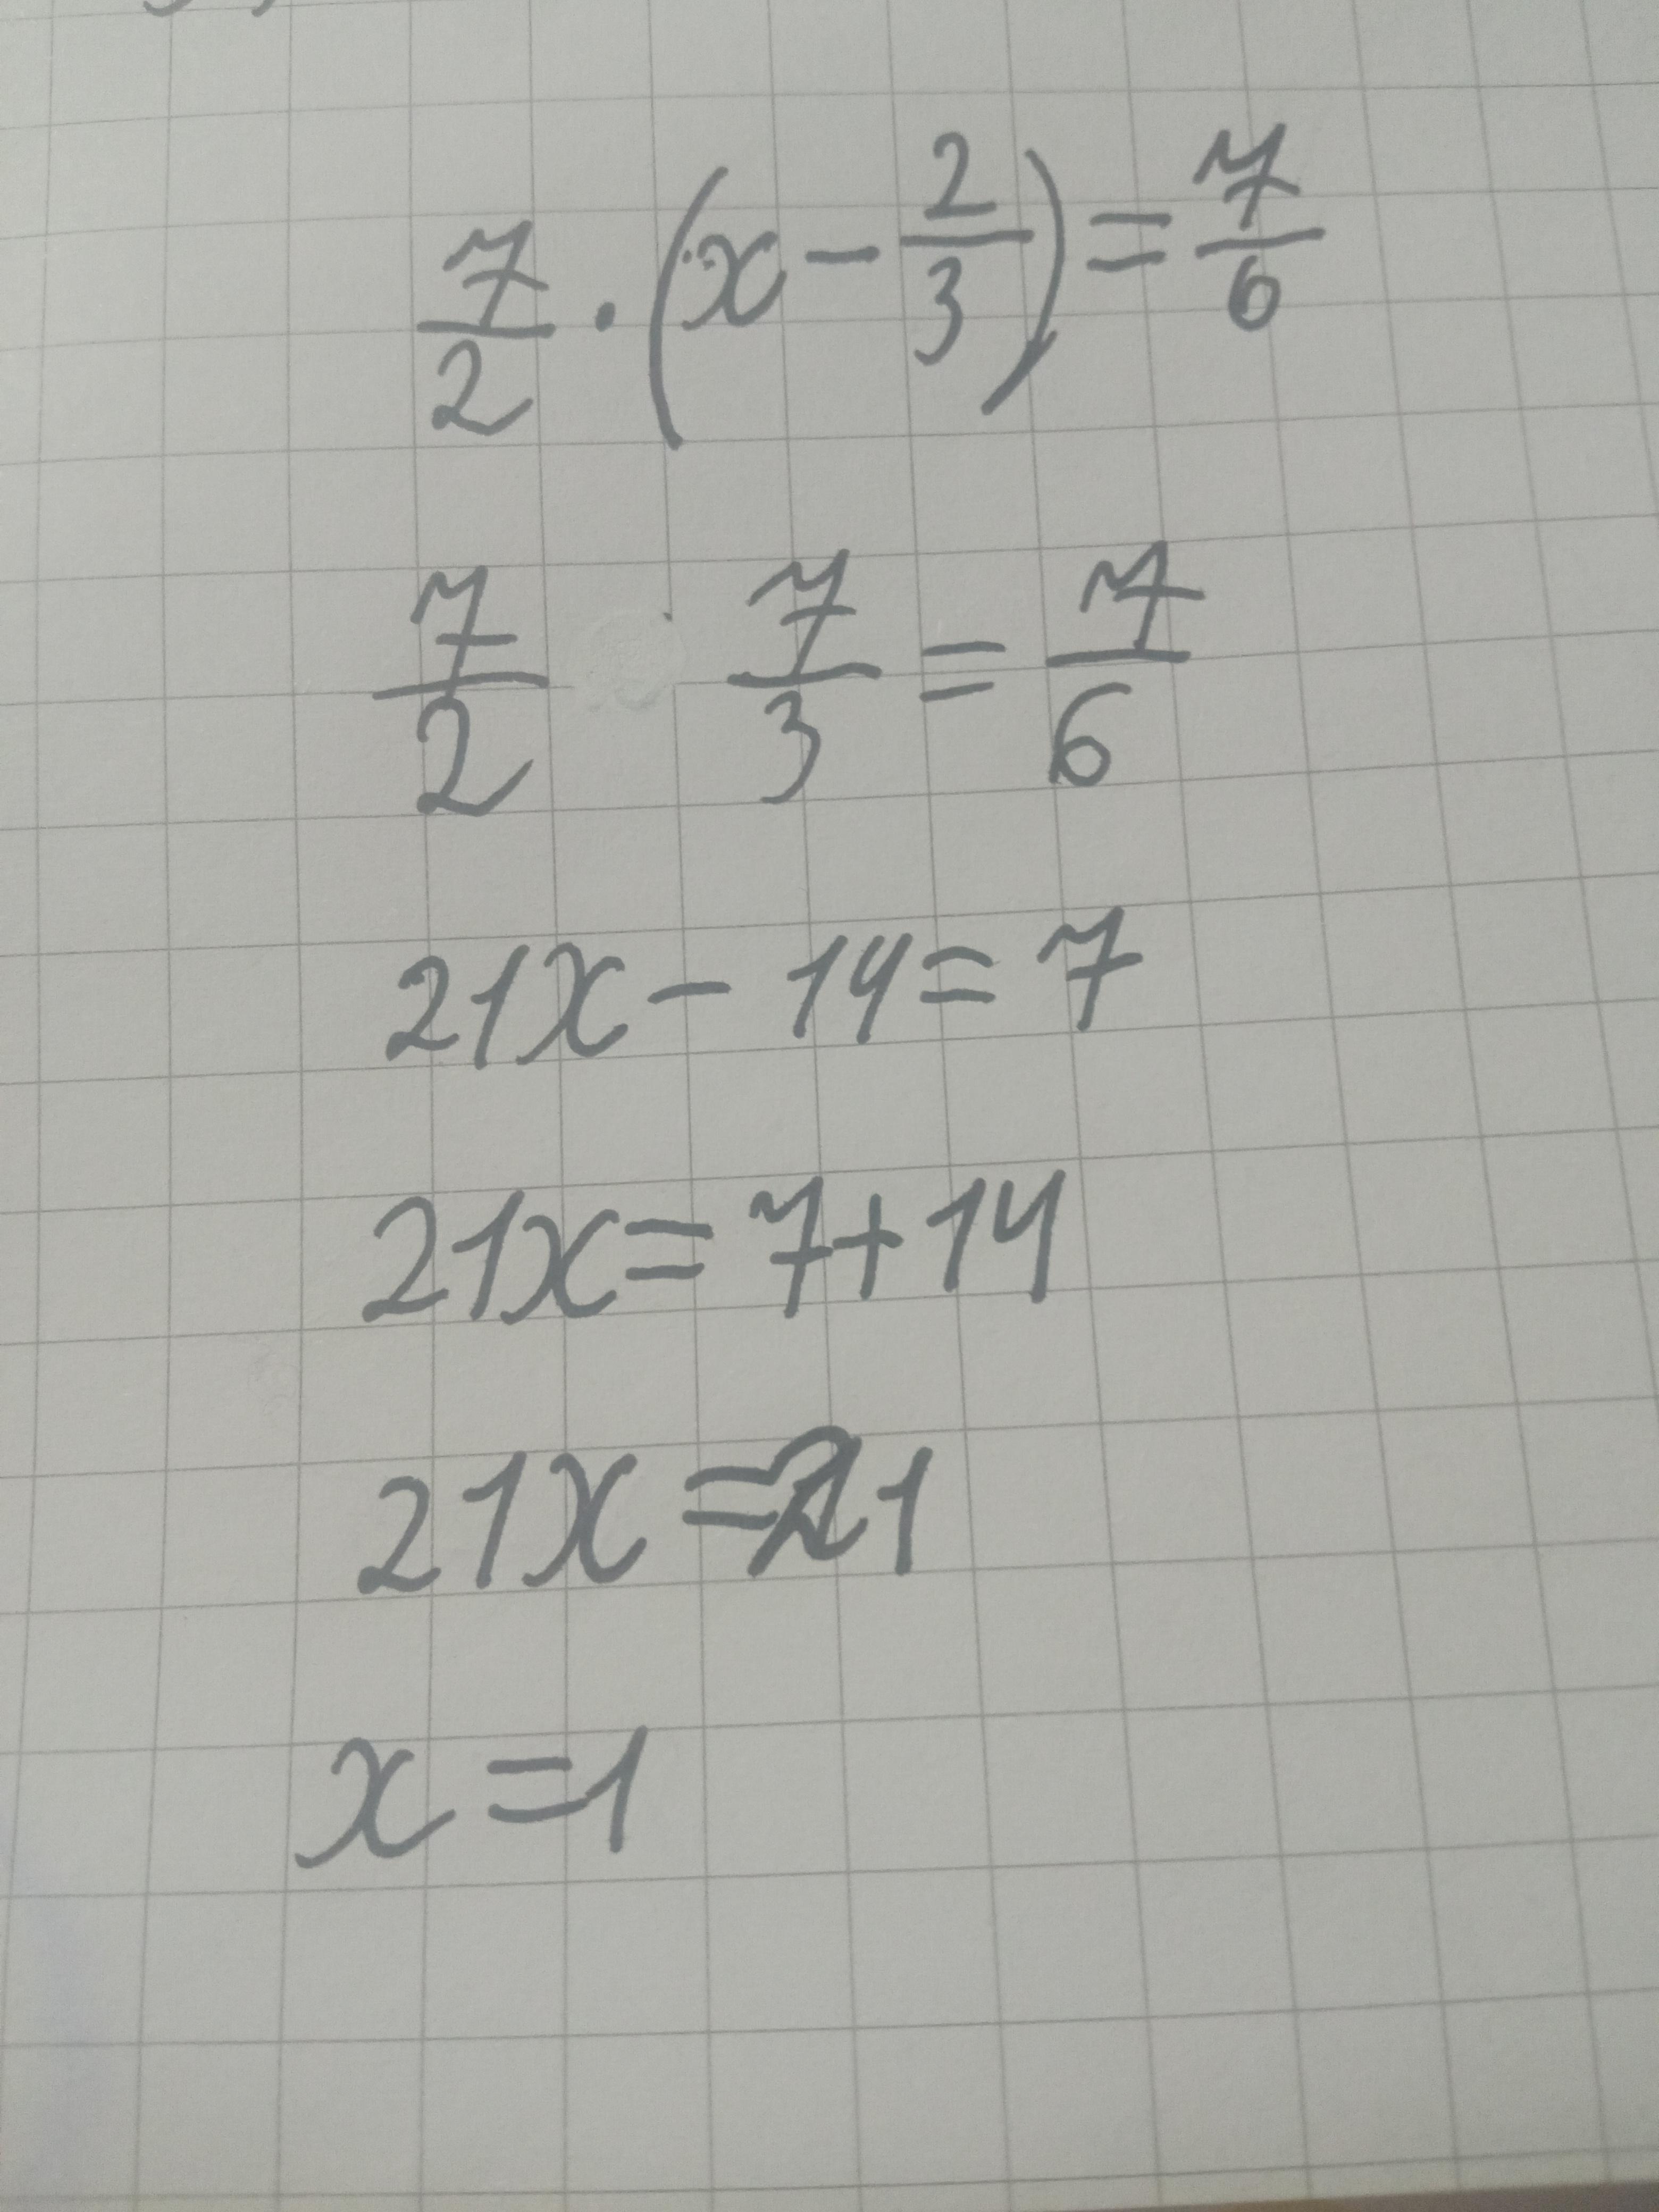 7/2 · (x - 2/3) = 7/6
7/2 7/3 = 7/6
21x - 14 = 7
21x = 7 + 14
21x = 21
x = 1